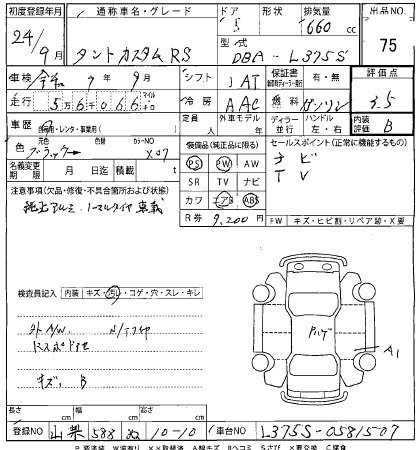 初度登録年月 通称車名・グレード ドア 形状 排気量 出品No.
24/9月 タントカスタムRS 5 660cc 75
型式 DBA-L375S
車検 令和 7年9月 シフト IAT 保証書 有・無 評価点
走行 56066 冷房 AAC 燃料 ガソリン 3.5
車歴 自家用・レンタ・事業用( ) 定員 人 外車モデル 年 ディーラー 並行 ハンドル 左・右 内装評価 B
色 元色 ブラック→ 色替 カラーNo. X07 装備品(純正品に限る) セールスポイント(正常に機能するもの)
PS PW AW ナビ
名義変更期限 月 日 積載 t SR TV ナビ TV
注意事項(欠品・修復・不具合箇所および状態) カワ エアB ABS
純正アルミ、ノーマルタイヤ車載 R券 9,200円 FW キズ・ヒビ割・リペア跡・X要
検査員記入 内装 キズ・汚れ・コゲ・穴・スレ・キレ
外A/W
キズ、B A1
長さ cm 幅 cm 高さ cm
登録No 山梨 588 10-10 車台No L375S-0581507